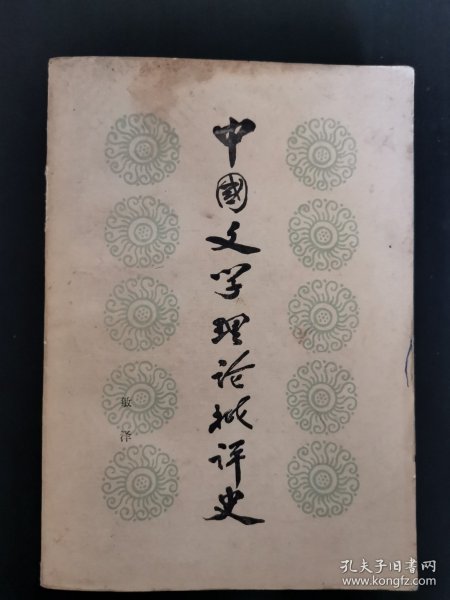 中國文学理论批评史
孔夫子旧书网
www.kongfz.com